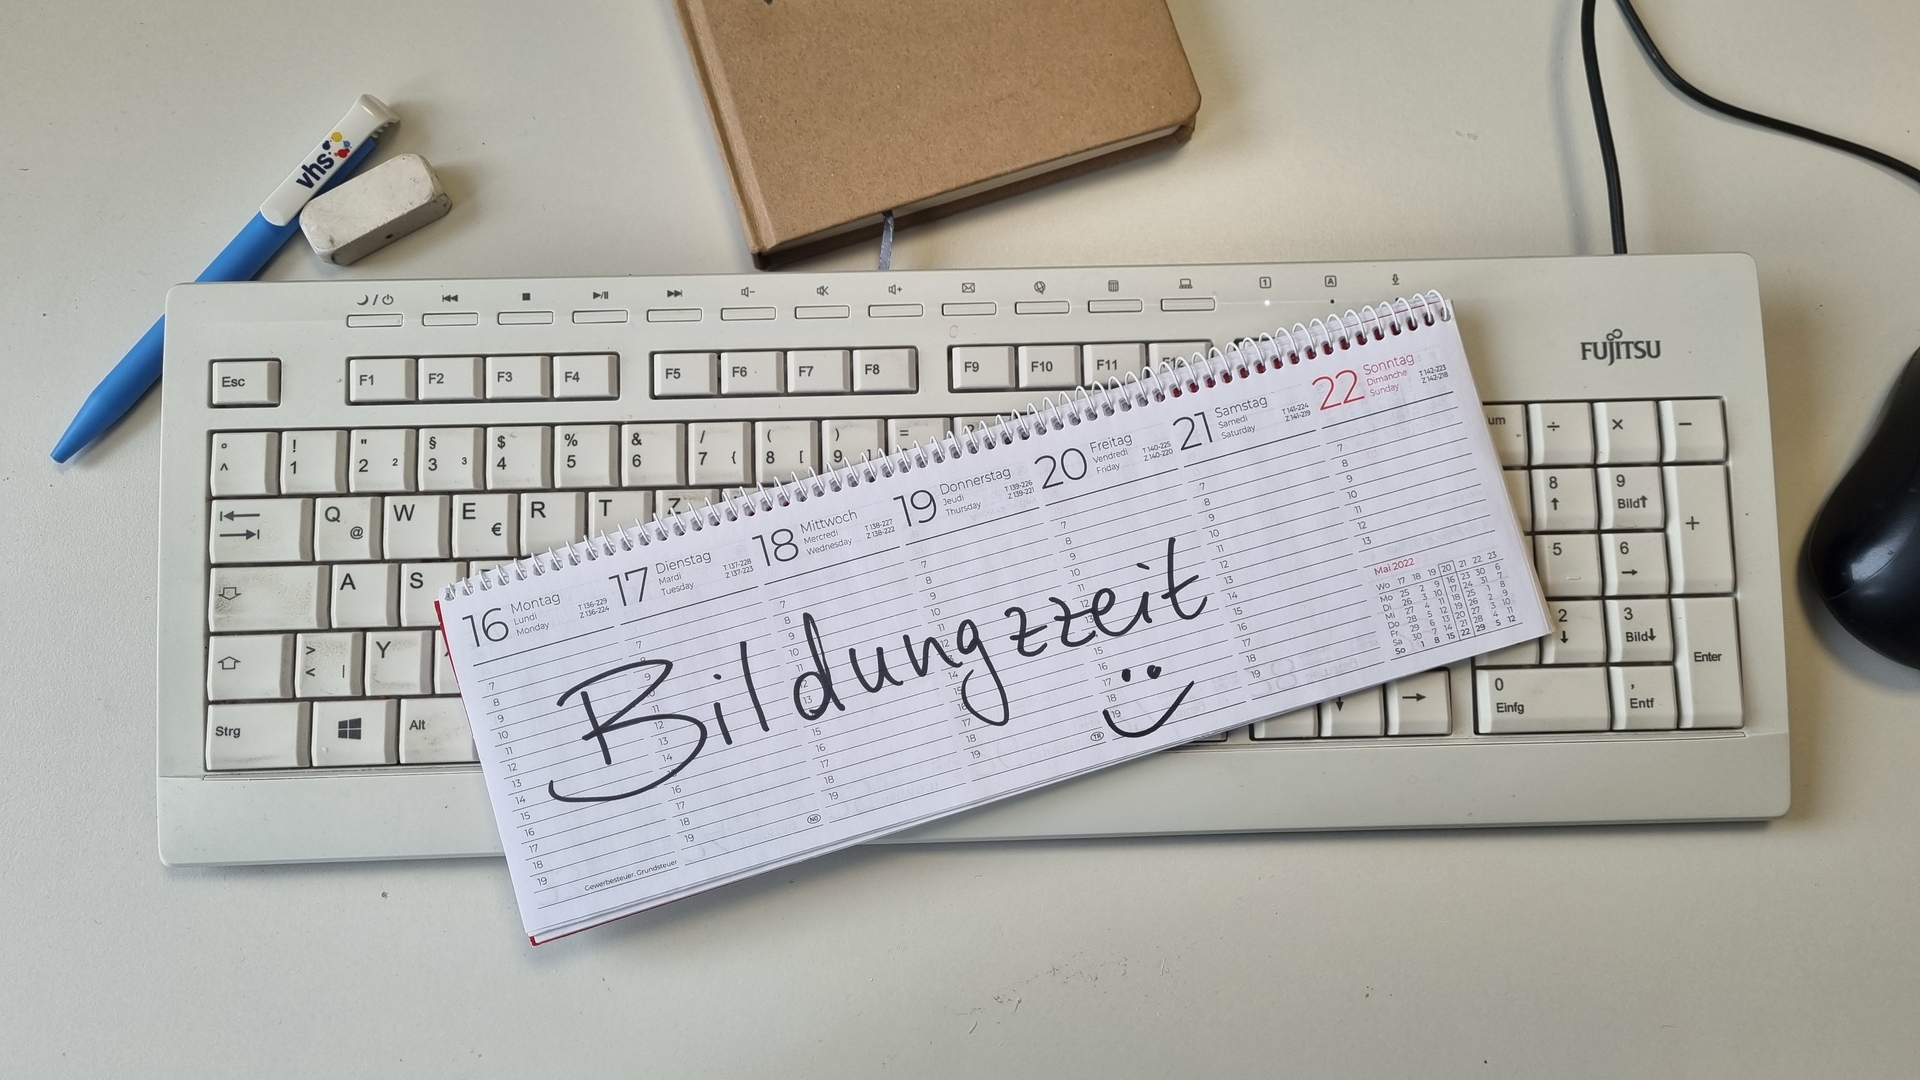 vhs
FUJITSU
Esc F1 F2 F3 F4 F5 F6 F7 F8 F9 F10 F11
° ^ ! 1 " 2 2 § 3 3 $ 4 % 5 & 6 / 7 { ( 8 [ ) 9 =
Q @ W E € R T Z
A S
> < | Y
Strg Alt
um ÷ × −
8 ↑ 9 Bild↑ +
5 6 →
2 ↓ 3 Bild↓ Enter
0 Einfg , Entf
16 Montag Lundi Monday T 136-229 Z 136-224
17 Dienstag Mardi Tuesday T 137-228 Z 137-223
18 Mittwoch Mercredi Wednesday T 138-227 Z 138-222
19 Donnerstag Jeudi Thursday T 139-226 Z 139-221
20 Freitag Vendredi Friday T 140-225 Z 140-220
21 Samstag Samedi Saturday T 141-224 Z 141-219
22 Sonntag Dimanche Sunday T 142-223 Z 142-218
Bildungzzeit
7 8 9 10 11 12 13 14 15 16 17 18 19
Gewerbesteuer, Grundsteuer
NO
TR
Mai 2022
Wo 17 18 19 20 21 22 23
Mo 25 2 9 16 23 30 6
Di 26 3 10 17 24 31 7
Mi 27 4 11 18 25 1 8
Do 28 5 12 19 26 2 9
Fr 29 6 13 20 27 3 10
Sa 30 7 14 21 28 4 11
So 1 8 15 22 29 5 12